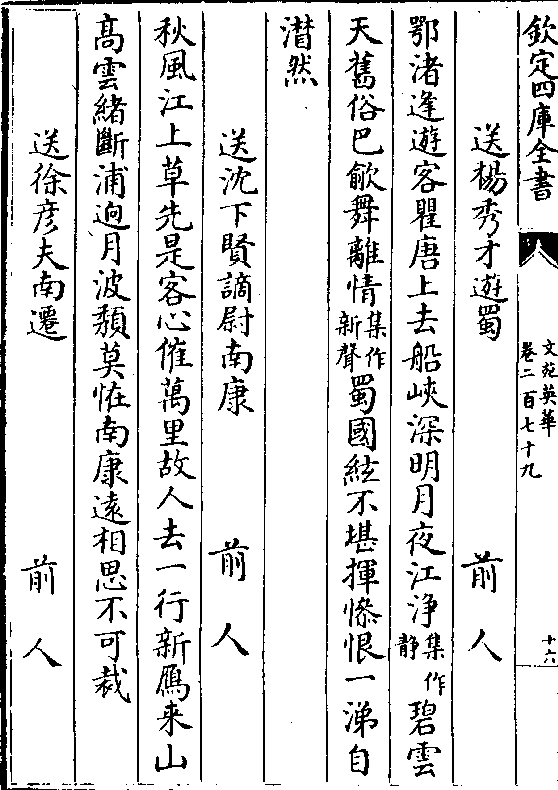 欽定四庫全書
文苑英華
卷二百七十九
十六
送楊秀才遊蜀 前人
鄂渚逢遊客瞿唐上去船峽深明月夜江浄集作靜碧雲
天舊俗巴歈舞離情集作新聲蜀國絃不堪揮慘恨一涕自
潸然
送沈下賢謫尉南康 前人
秋風江上草先是客心催萬里故人去一行新鴈来山
髙雲緒斷浦逈月波頽莫恠南康遠相思不可裁
送徐彦夫南遷 前人